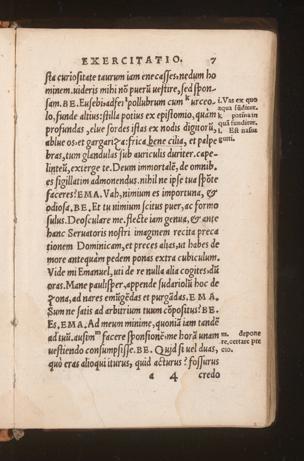 EXERCITATIO. 7
sta curiositate taurum iam enecasses, nedum ho
minem. uideris mihi nõ puerũ uestire, sed spon-
sam. BE. Eusebi, adfer pollubrum cum k urceo-
lo, funde altius: stilla potius ex epistomio, quàm
profundas, elue sordes istas ex nodis digitorũ,
ablue os: et gargariza: frica bene cilia, et palpe
bras, tum glandulas sub auriculis duriter. cape
linteũ, exterge te. Deum immortalẽ, de omnib.
es sigillatim admonendus. nihil ne ipse tua spõte
faceres? EMA. Vah, nimium es importuna, &
odiosa. BE. Et tu nimium scitus puer, ac formo
sulus. Deosculare me. flecte iam genua, & ante
hanc Seruatoris nostri imaginem recita preca
tionem Dominicam, et preces alias, ut habes de
more antequàm pedem ponas extra cubiculum.
Vide mi Emanuel, uti de re nulla alia cogites dũ
oras. Mane paulisper, appende sudariolũ hoc de
zona, ad nares emũgẽdas et purgãdas. EMA.
Sum ne satis ad arbitrium tuum cõpositus? BE.
Es, EMA. Ad meum minime, quoniã iam tandẽ
ad tuũ. ausim m facere sponsionẽ me horã unam
uestiendo consumpsisse. BE. Quid si uel duas,
quò eras alioqui iturus, quid acturus? fossurus
a 4 credo
i. Vas ex quo
aqua fũditur.
k potius in
quã funditur.
l. Est nasus
gutti.
m. depone
re, certare pre
cio.